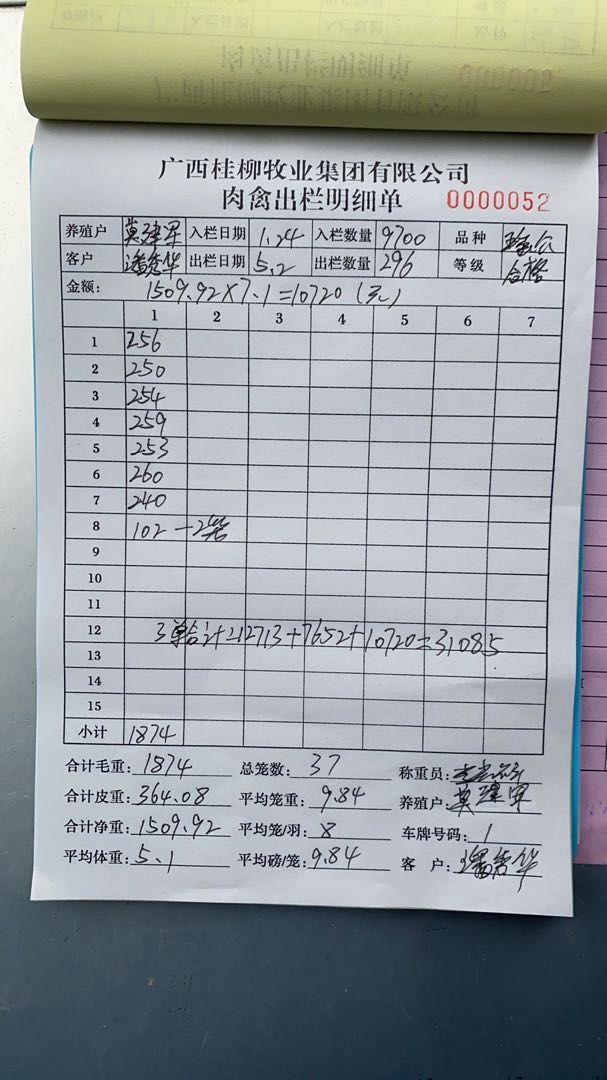 0000052
广西桂柳牧业集团有限公司
肉禽出栏明细单 0000052
养殖户 莫建军 入栏日期 1.24 入栏数量 9700 品种
客户 潘秀华 出栏日期 5.2 出栏数量 296 等级 合格
金额: 1509.92×7.1=10720(元)
1 2 3 4 5 6 7
1 256
2 250
3 254
4 259
5 253
6 260
7 240
8 102—2笼
9
10
11
12 3单合计+12713+7652+10720=31085
13
14
15
小计 1874
合计毛重: 1874 总笼数: 37 称重员:
合计皮重: 364.08 平均笼重: 9.84 养殖户: 莫建军
合计净重: 1509.92 平均笼/羽: 8 车牌号码: 1
平均体重: 5.1 平均磅/笼: 9.84 客 户: 潘秀华